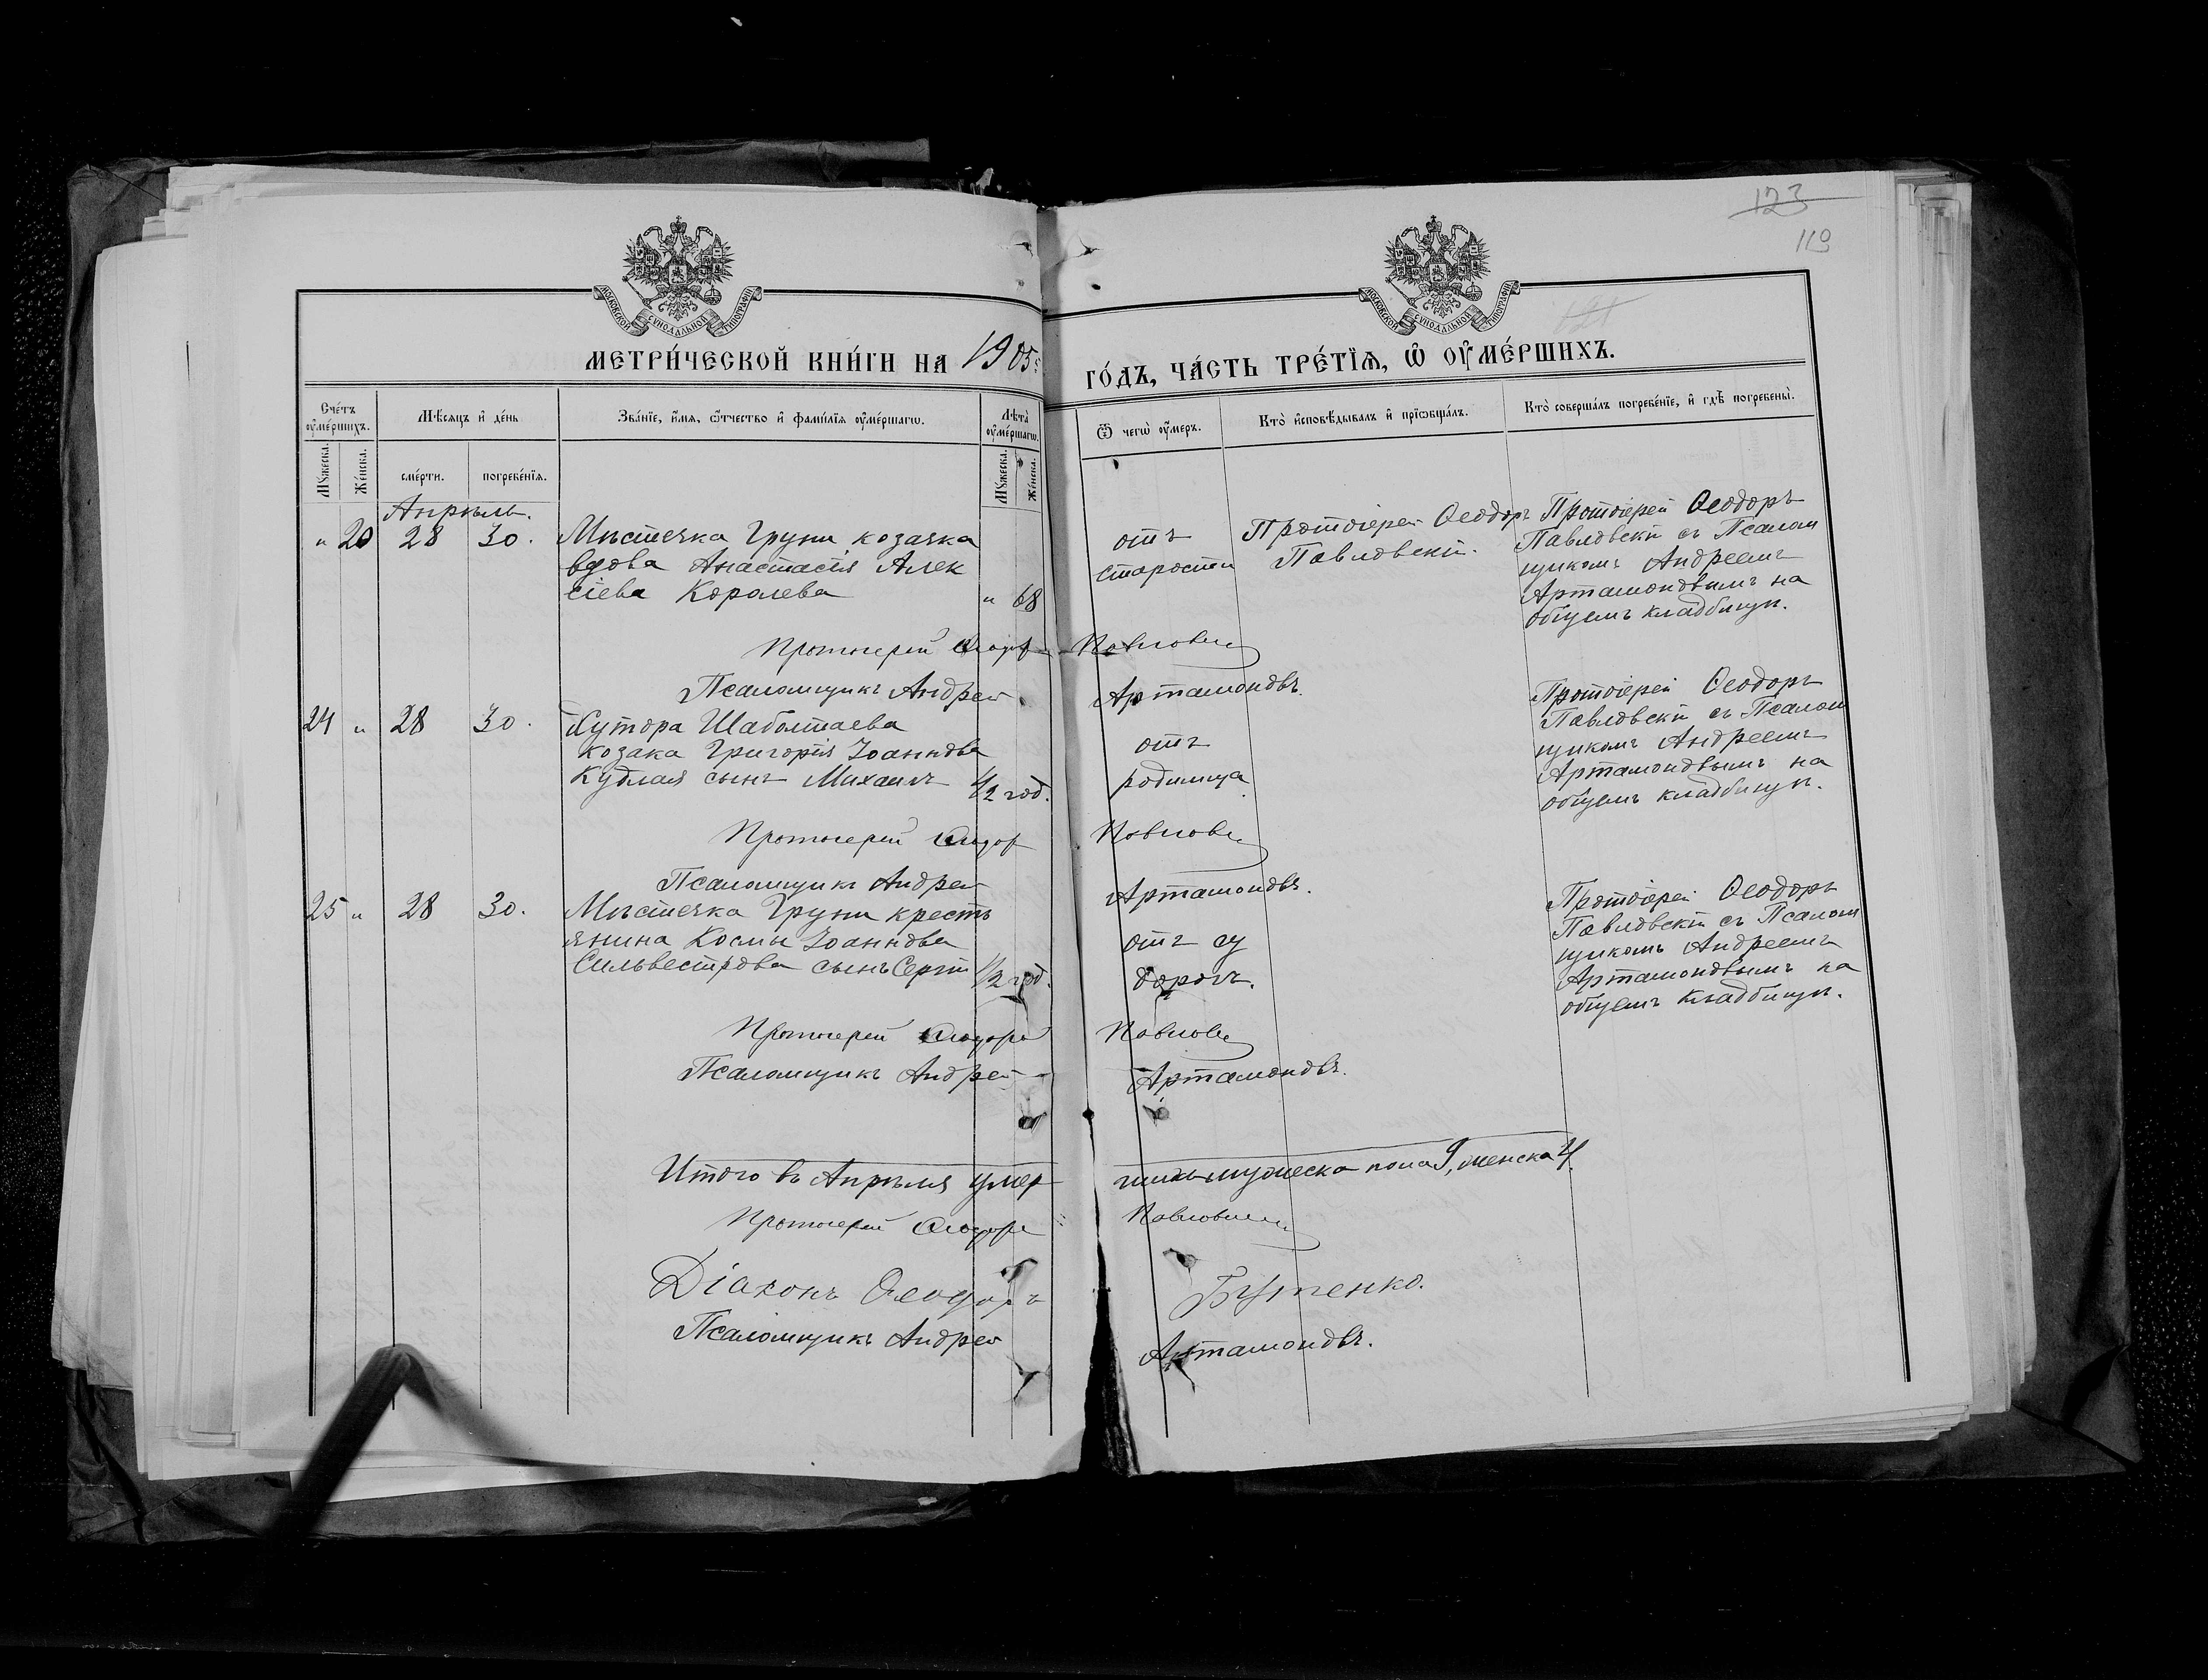 123
119
МОСКОВСКОЙ СѴНОДАЛЬНОЙ ТИПОГРАФІИ
МОСКОВСКОЙ СѴНОДАЛЬНОЙ ТИПОГРАФІИ
МЕТРИ́ЧЕСКОЙ КНИ́ГИ НА 1905 ГО́ДЪ, ЧА́СТЬ ТРЕ́ТЇѦ, Ѡ҆ ОУ҆МЕ́РШИХЪ.
Сче́тъ оу҆ме́ршихъ.
Мѣ́сѧцъ и҆ де́нь
Зва́нїе, и҆́мѧ, ѻ҆́тчество и҆ фами́лїѧ оу҆ме́ршагѡ.
Лѣ́та оу҆ме́ршагѡ.
Ѿ чегѡ̀ оу҆́меръ.
Кто̀ и҆сповѣ́дывалъ и҆ прїѡбща́лъ.
Кто̀ соверша́лъ погребе́нїе, и҆ гдѣ̀ погребены̀.
Мꙋ́жеска.
Же́нска.
сме́рти.
погребе́нїѧ.
Мꙋ́жеска.
Же́нска.
Апрѣль.
" 20 28 30. Мѣстечка Груни козачка
вдова Анастасія Алек
сіева Королева " 68
отъ
старости
Протоіерей Ѳеодоръ
Павловскій.
Протоіерей Ѳеодоръ
Павловскій съ Псалом
щикомъ Андреемъ
Артамоновымъ на
общемъ кладбищѣ.
Протоіерей Ѳеодоръ Павловскій
Псаломщикъ Андрей Артамоновъ.
24 " 28 30. Хутора Шаболтаева
козака Григорія Іоаннова
Кудлая сынъ Михаилъ 1/2 год.
отъ
родимца
Протоіерей Ѳеодоръ
Павловскій съ Псалом
щикомъ Андреемъ
Артамоновымъ на
общемъ кладбищѣ.
Протоіерей Ѳеодоръ Павловскій
Псаломщикъ Андрей Артамоновъ.
25 " 28 30. Мѣстечка Груни кресть
янина Космы Іоаннова
Сильвестрова сынъ Сергій 1/2 год.
отъ су
дорогъ.
Протоіерей Ѳеодоръ
Павловскій съ Псалом
щикомъ Андреемъ
Артамоновымъ на
общемъ кладбищѣ.
Протоіерей Ѳеодоръ Павловскій
Псаломщикъ Андрей Артамоновъ.
Итого въ Апрѣля умершихъ мужеска пола 9, женска 4.
Протоіерей Ѳеодоръ Павловскій
Діаконъ Ѳеодоръ Бутенко.
Псаломщикъ Андрей Артамоновъ.